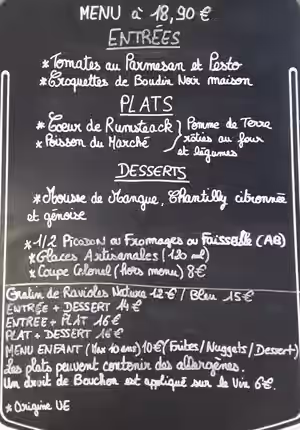 MENU à 18,90 €
ENTRÉES
* Tomates au Parmesan et Pesto
* Croquettes de Boudin Noir maison
PLATS
* Coeur de Rumsteack } Pomme de Terre
* Poisson du Marché rôties au four
et légumes
DESSERTS
* Mousse de Mangue, Chantilly citronnée
et génoise
* 1/2 Picodon ou Fromages ou Faisselle (AB)
* Glaces Artisanales (120 ml)
* Coupe Colonel (hors menu) 8€
Gratin de Ravioles Nature 12€ / Bleu 15€
ENTRÉE + DESSERT 14€
ENTRÉE + PLAT 16€
PLAT + DESSERT 16€
MENU ENFANT (Max 10 ans) 10€ (Frites/Nuggets/Dessert)
Les plats peuvent contenir des allergènes.
Un droit de Bouchon est appliqué sur le Vin 6€.
* Origine UE